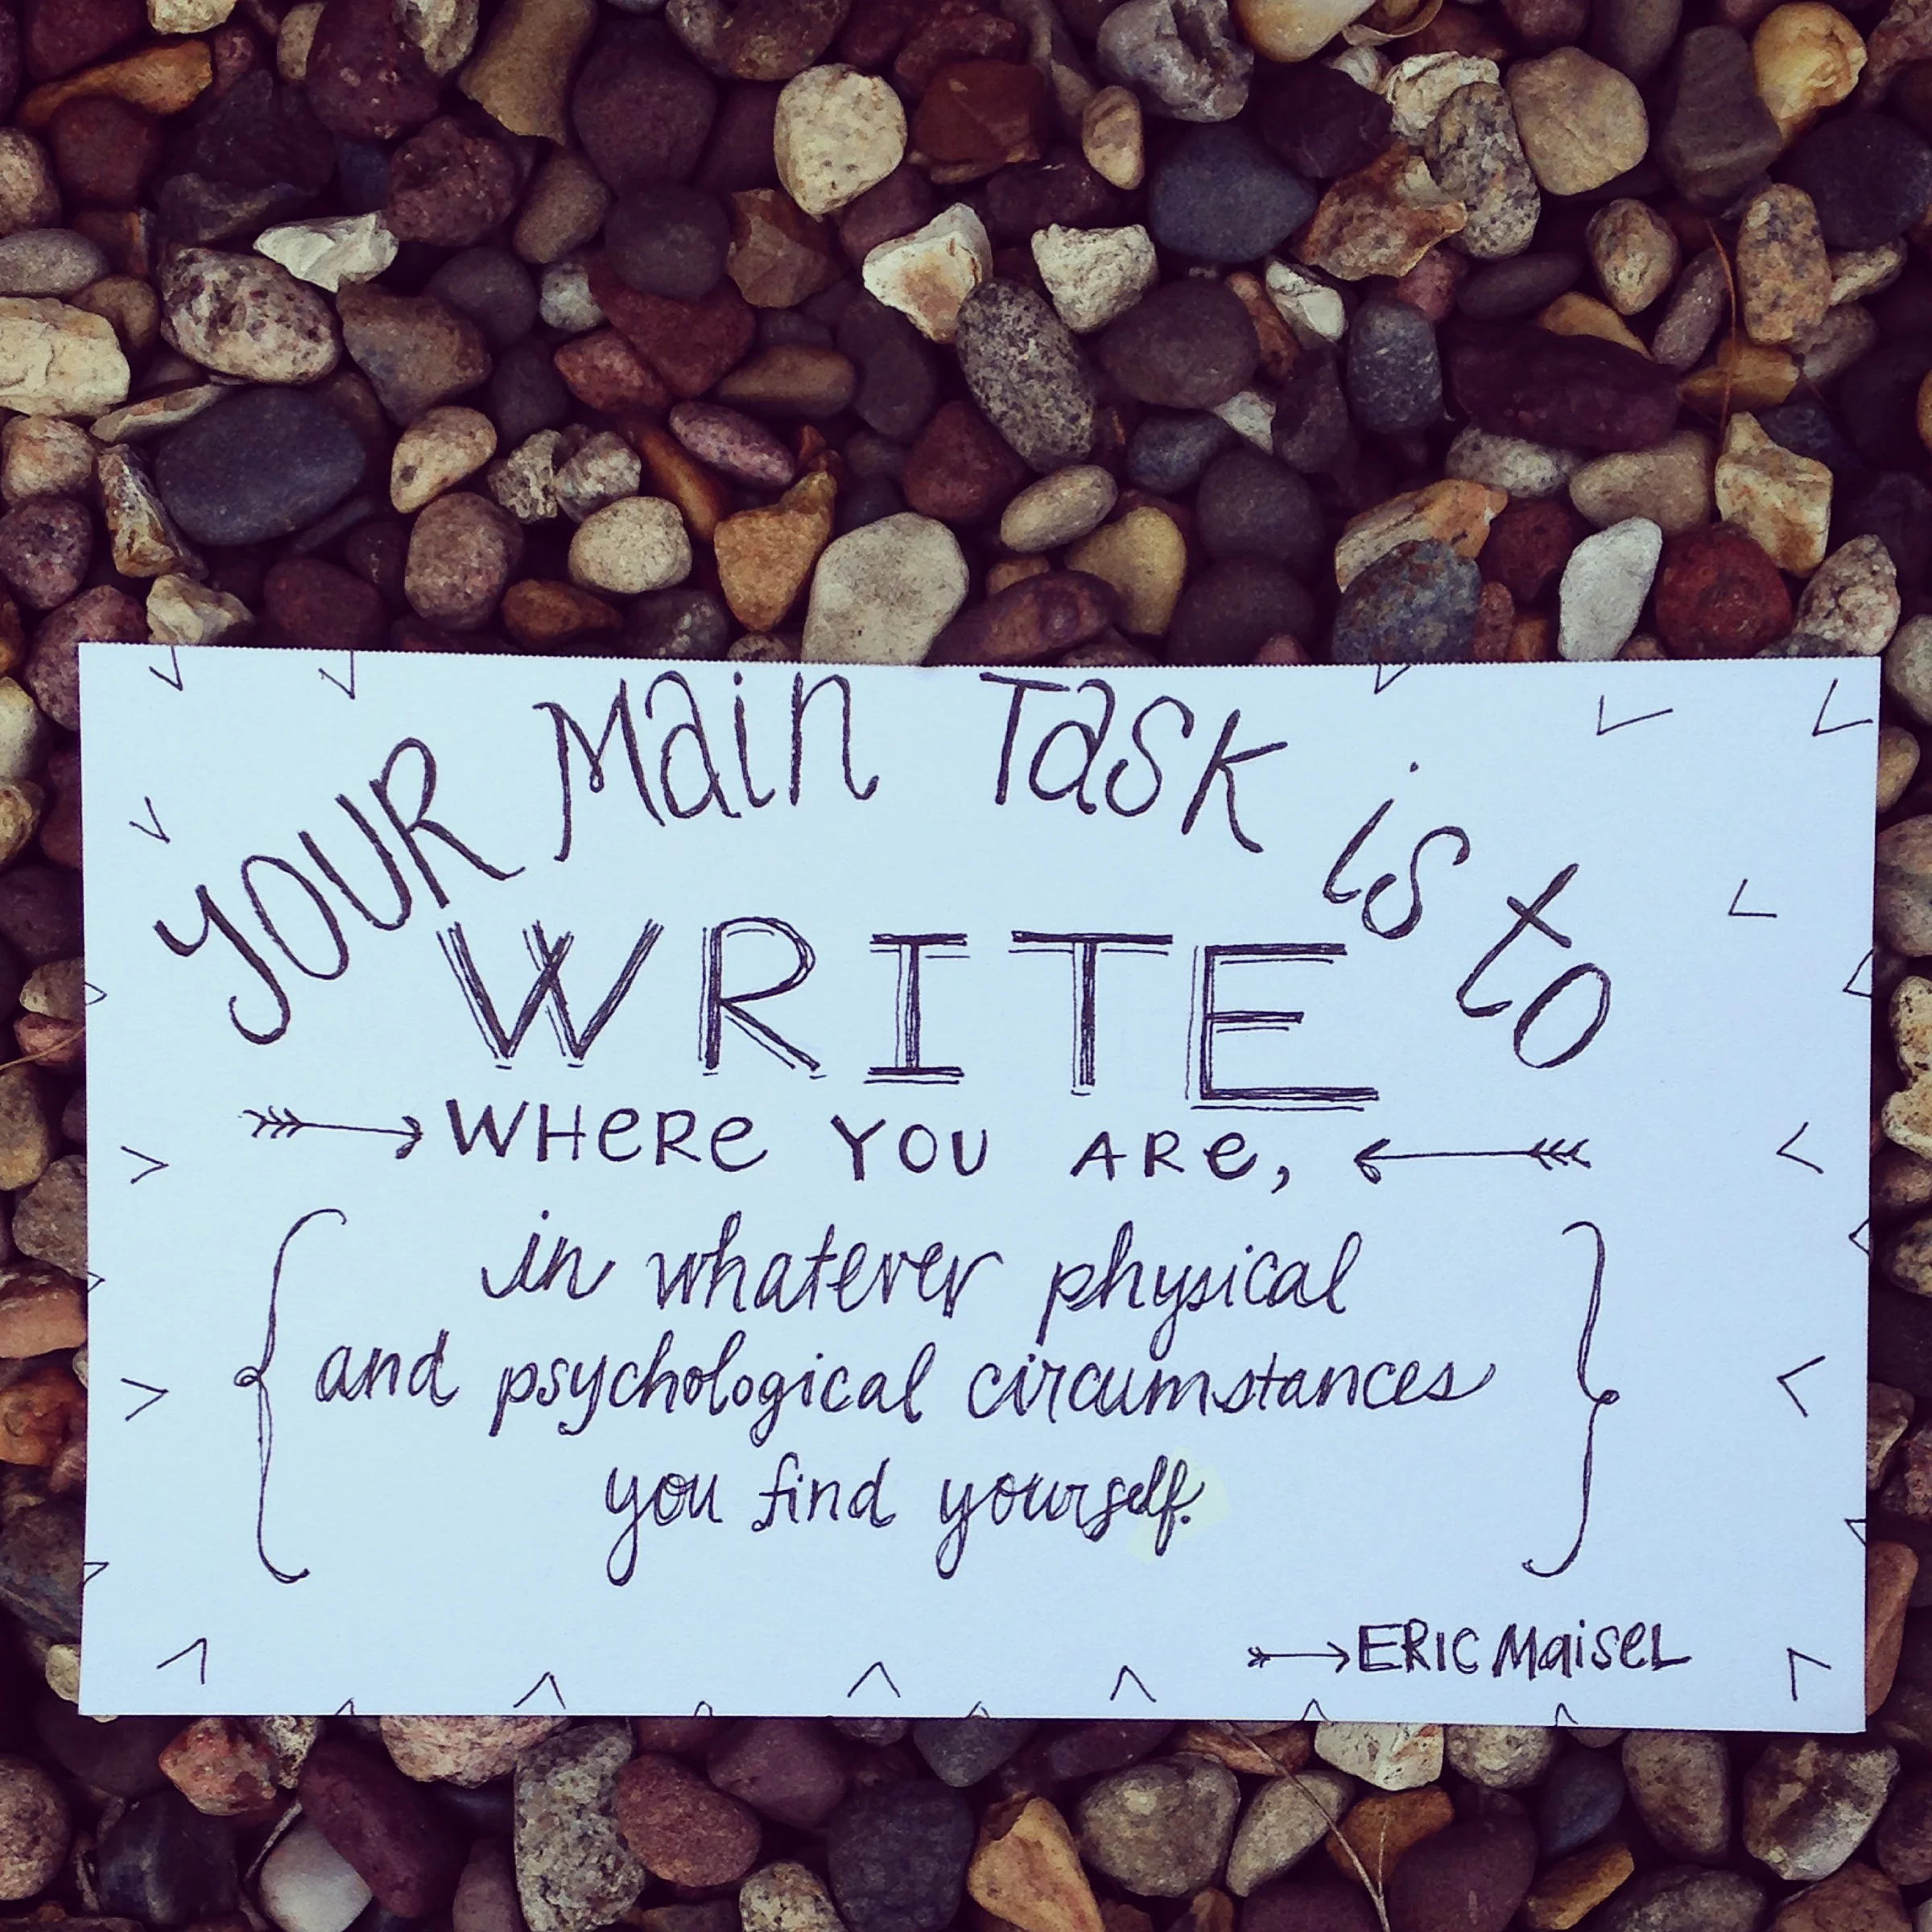 YOUR Main Task is to
WRITE
WHeRe YOU ARe,
in whatever physical
and psychological circumstances
you find yourself.
ERIC MaiseL